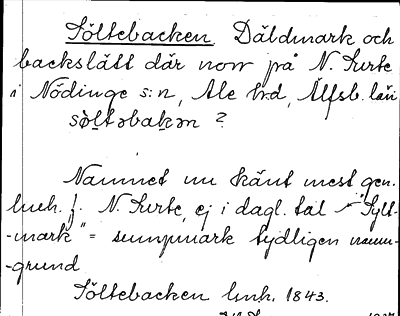 Söltebacken Däldmark och
backslätt där norr på N. Surte
i Nödinge s:n, Ale h:d, Älfsb. län
sòltəbakən ?
Namnet nu känt mest gen.
lmh. f. N. Surte, ej i dagl. tal "Sylt-
-mark" = sumpmark tydligen namn-
-grund
Söltebacken lmh. 1843.